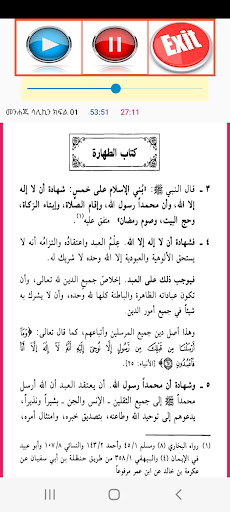 Exit
መንሐጁ ሳሊኪን ክፍል 01 53:51 27:11
كتاب الطهارة
٣ ـ قال النبي ﷺ: «بُني الإسلام على خمس: شهادة أن لا إله
إلا الله، وأن محمداً رسول الله، وإقام الصلاة، وإيتاء الزكاة،
وحج البيت، وصوم رمضان» متفق عليه(١).
٤ ـ فشهادة أن لا إله إلا الله. عِلْمُ العبد واعتقاده والتزامه أنه لا
يستحق الألوهية والعبودية إلا الله وحده لا شريك له.
فيوجب ذلك على العبد. إخلاصَ جميعِ الدين لله تعالى، وأن
تكون عباداته الظاهرة والباطنة كلها لله وحده، وأن لا يشرك به
شيئاً في جميع أمور الدين.
وهذا أصل دين جميع المرسلين وأتباعهم، كما قال تعالى: ﴿وَمَآ
أَرْسَلْنَا مِن قَبْلِكَ مِن رَّسُولٍ إِلَّا نُوحِىٓ إِلَيْهِ أَنَّهُ لَآ إِلَٰهَ إِلَّآ أَنَا۠
فَٱعْبُدُونِ﴾ [الأنبياء: ٢٥].
٥ ـ وشهادة أن محمداً رسول الله. أن يعتقد العبد أن الله أرسل
محمداً ﷺ إلى جميع الثقلين ـ الإنس والجن ـ بشيراً ونذيراً،
يدعوهم إلى توحيد الله وطاعته، بتصديق خبره، وامتثال أمره،
(١) رواه البخاري (٨) ومسلم ٤٥/١ وأحمد ١٤٣/٢ والنسائي ١٠٧/٨ وأبو عبيد
في الإيمان (٤) والبيهقي ٣٥٨/١ من طريق حنظلة بن أبي سفيان عن
عكرمة بن خالد عن ابن عمر مرفوعاً